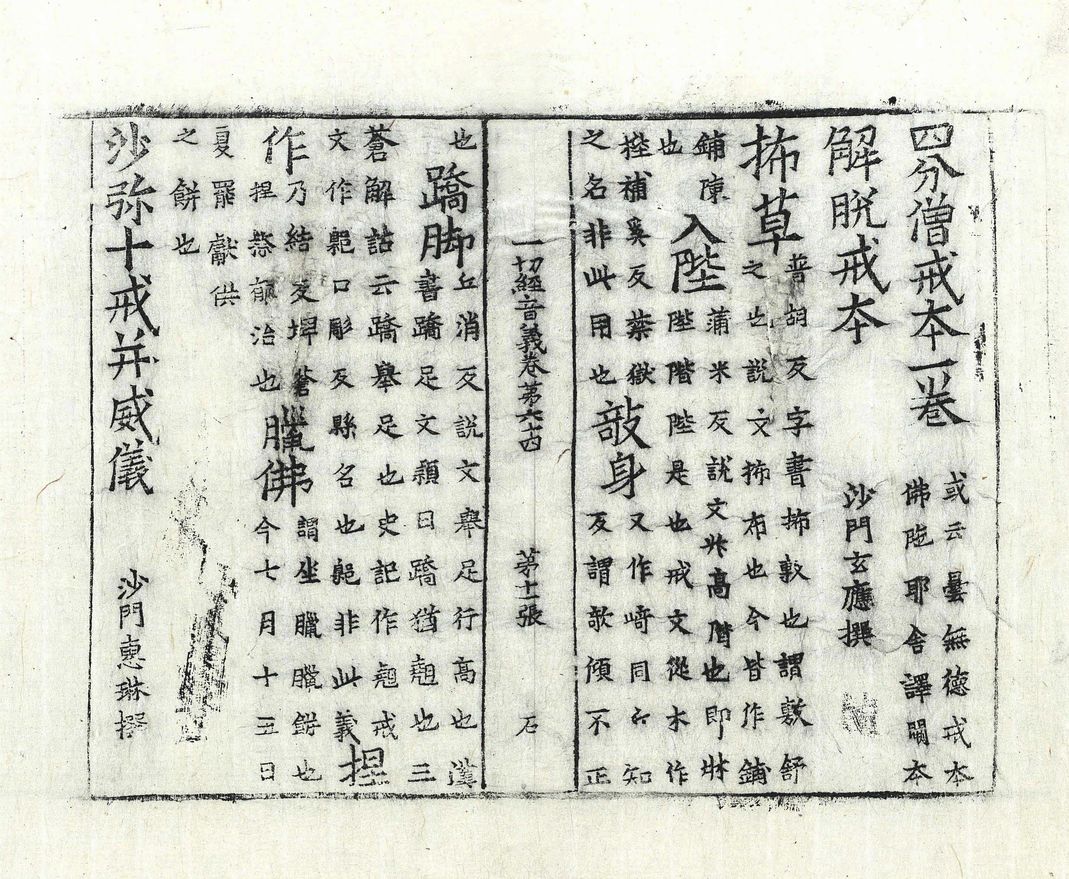 四分僧戒本一卷
或云曇無德戒本
佛陁耶舍譯闕本
解脫戒本 沙門玄應撰
抪草
普胡反字書抪敷也謂敷舒
之也說文抪布也今皆作鋪
鋪陳
也
入陛
蒲米反說文升高階也即牀
陛階陛是也戒文從木作
梐補奚反獄
之名非此用也
敧身
又作崎同知
反謂欹傾不正
一切經音義卷第六十四 第十一張 石
也
蹻脚
丘消反說文舉足行高也漢
書蹻足文穎曰蹻猶翹也三
蒼解詁云蹻舉足也史記作翹戒
文作鄡口彫反縣名也鄡非此義
捏
作
乃結反埤蒼
捏治也
臘佛
謂坐臘臘餅也
今七月十五日
夏罷獻供
之餅也
沙弥十戒并威儀 沙門惠琳撰